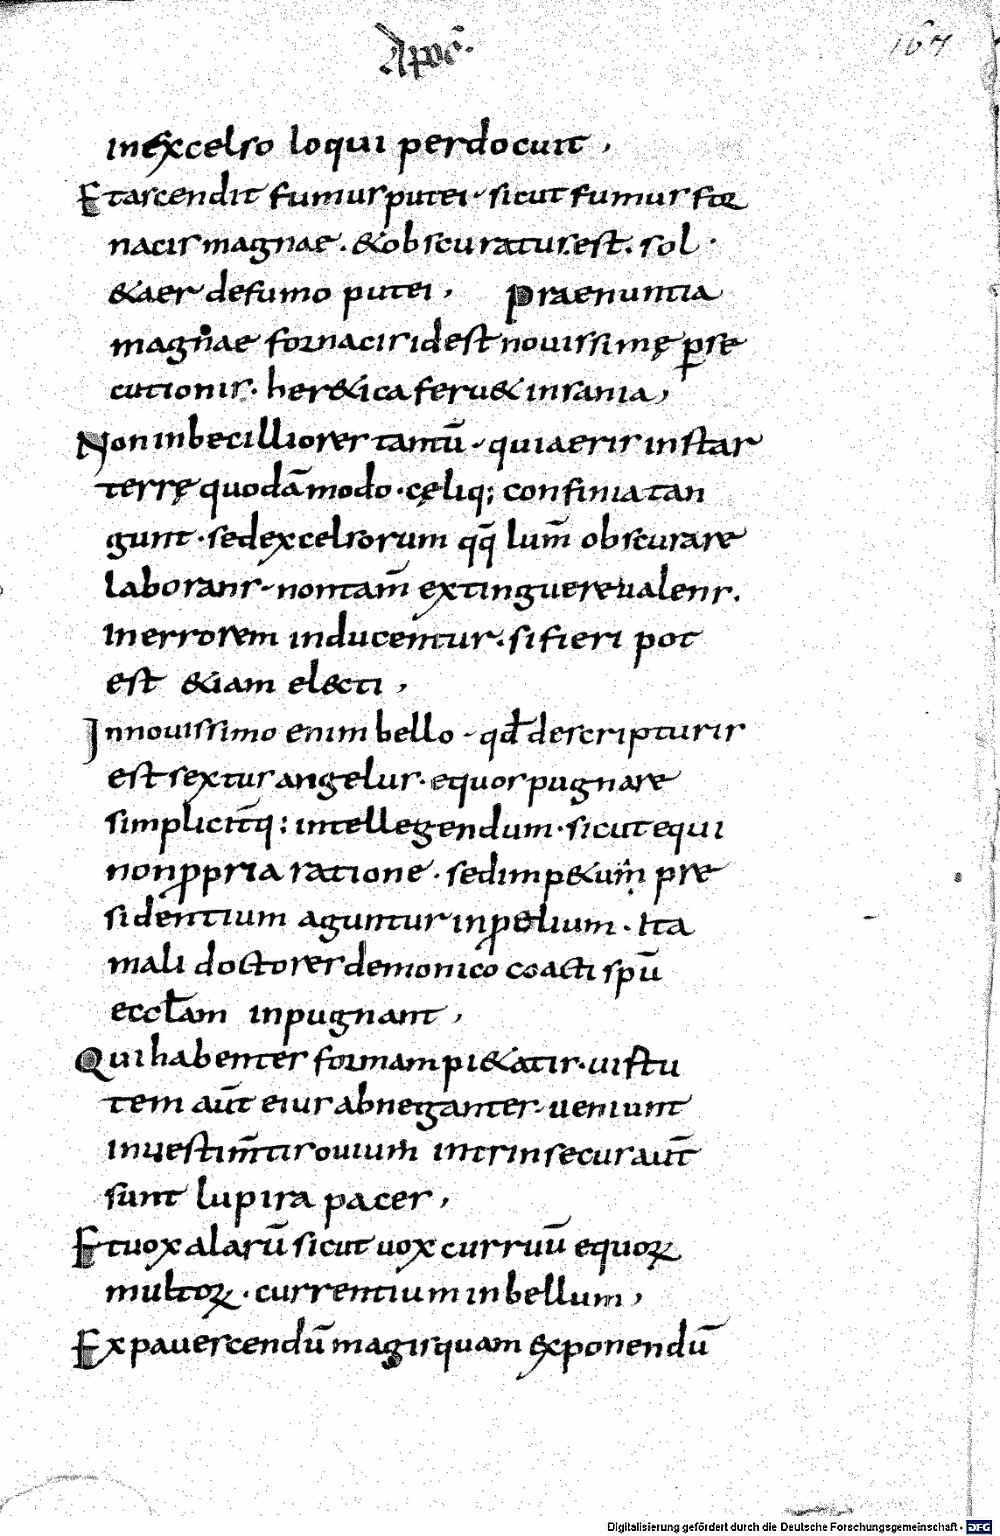 Apoc̄.
167
inexcelso loqui perdocuit,
Et ascendit fumus putei · sicut fumus for
nacis magnae · & obscuratus est · sol ·
& aer defumo putei, Praenuntia
magnae fornacis idest nouissimę p̲se
cutionis · her&ica feru& insania,
Non inbecilliores tantū · quia eris instar
terrę quodā modo · cęliq; confinia tan
gunt · sed excelsorum qq̄ lum̄ obscurare
laborans · non tam̄ extinguere ualens.
In errorem inducentur · si fieri pot
est &iam electi,
In nouissimo enim bello · qd̄ descripturis
est sextus angelus · equos pugnare
simplicit̄q: intellegendum · sicut equi
non ꝓpria ratione · sed imp&um̄ pre
sidentium aguntur in ꝓelium · Ita
mali doctores demonico coacti spū
eccl̄am inpugnant,
Qui habentes formam pi&atis · uirtu
tem aūt eius abnegantes · ueniunt
in uestim̄tis ouium intrinsecus aūt
sunt lupi rapaces,
Et uox alarū sicut uox curruū equoꝝ
multoꝝ · currentium in bellum,
Expauescendū magis quam exponendū
Digitalisierung gefördert durch die Deutsche Forschungsgemeinschaft - DFG